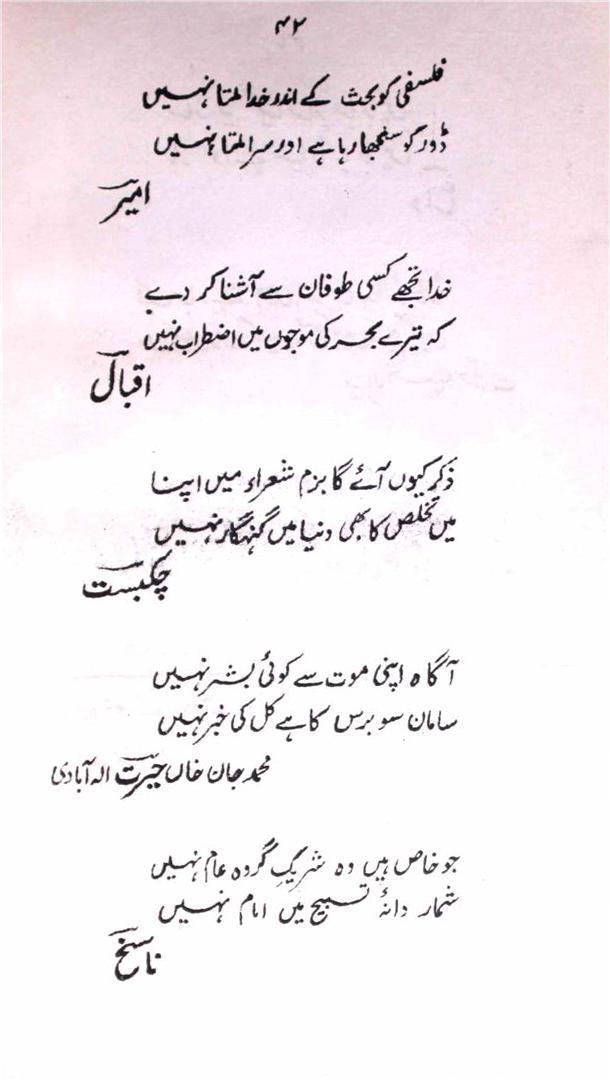 ۴۲
فلسفی کو بحث کے اندر خدا ملتا نہیں
ڈور کو سلجھا رہا ہے اور سرا ملتا نہیں
امیر
خدا تجھے کسی طوفان سے آشنا کر دے
کہ تیرے بحر کی موجوں میں اضطراب نہیں
اقبال
ذکر کیوں آئے گا بزم شعراء میں اپنا
میں تخلص کا بھی دنیا میں گنہگار نہیں
چکبست
آگاہ اپنی موت سے کوئی بشر نہیں
سامان سو برس کا ہے کل کی خبر نہیں
محمد جان خاں حیرت الہ آبادی
جو خاص ہیں وہ شریکِ گروہ عام نہیں
شمار دانۂ تسبیح میں امام نہیں
ناسخ